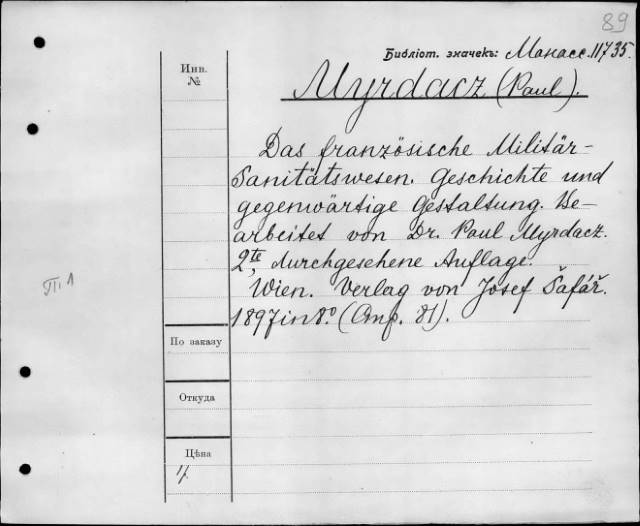 89
Библіот. значекъ: Манасс. 11735.
Инв.
№
Myrdacz (Paul).
Das französische Militär-
Sanitätswesen. Geschichte und
gegenwärtige Gestaltung. Be-
arbeitet von Dr. Paul Myrdacz.
2te, durchgesehene Auflage.
Wien. Verlag von Josef Šafář.
1897 in 8.º (Стр. 81).
По заказу
Откуда
Цѣна